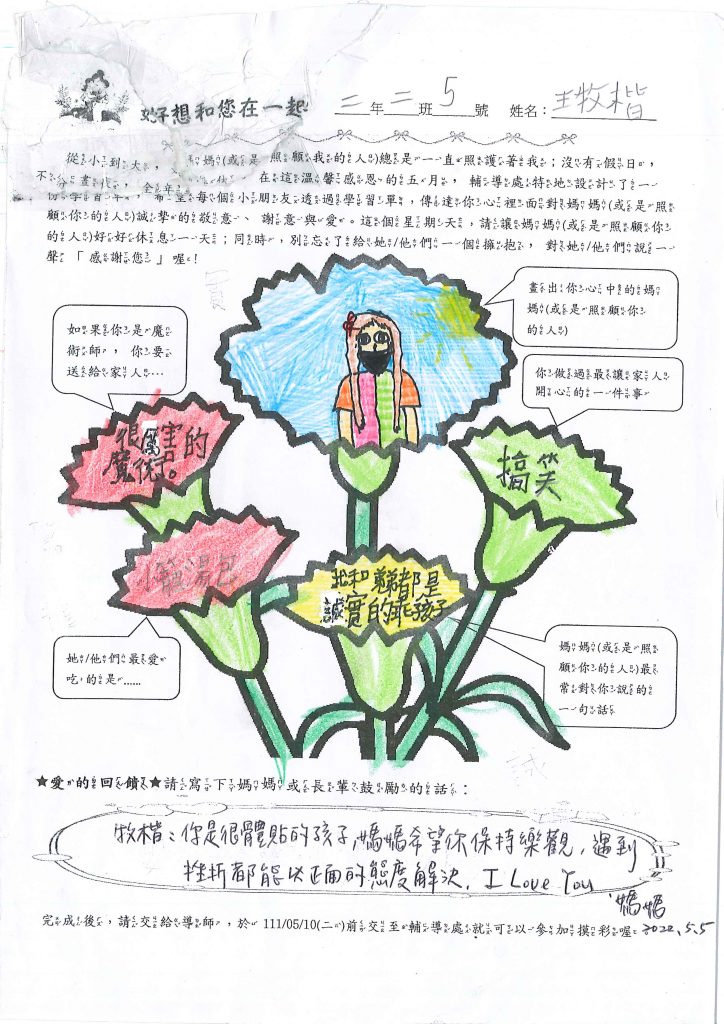 好想和您在一起
三年二班5號 姓名:王牧楷
從小到大,媽(或是照顧我的人)總是一直照護著我;沒有假日,
不分晝夜,全年無休,在這溫馨感恩的五月,輔導處特地設計了一
份學習單,希望每個小朋友透過學習單,傳達你心裡面對媽媽(或是照
顧你的人)誠摯的敬意、謝意與愛。這個星期天,請讓媽媽(或是照顧你
的人)好好休息一天;同時,別忘了給她/他們一個擁抱,對她/他們說一
聲「感謝您」喔!
畫出你心中的媽
媽(或是照顧你
的人)
如果你是魔
術師,你要
送給家人…
你做過最讓家人
開心的一件事
很厲害的
魔術。
搞笑
小籠湯包
我和弟弟都是
誠實的乖孩子
她/他們最愛
吃的是……
媽媽(或是照
顧你的人)最
常對你說的
一句話
★愛的回饋★請寫下媽媽或長輩鼓勵的話:
牧楷:你是很體貼的孩子,媽媽希望你保持樂觀,遇到
挫折都能以正面的態度解決, I Love You
媽媽
2022.5.5
完成後,請交給導師,於 111/05/10(二)前交至輔導處就可以參加摸彩喔~